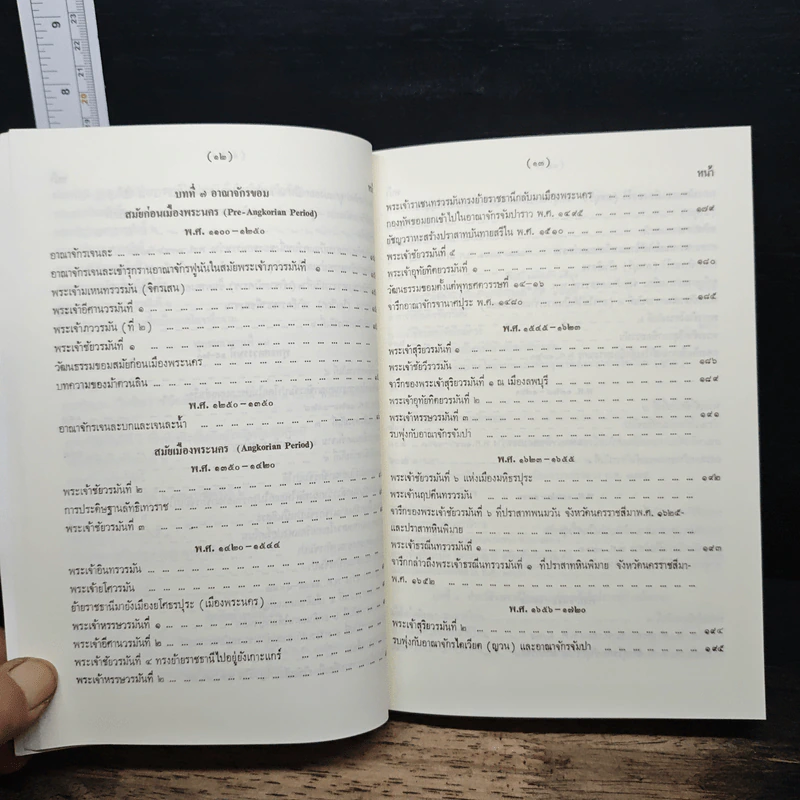 9
8
23
22
21
20
19
(๑๒)
บทที่ ๗ อาณาจักรขอม
สมัยก่อนเมืองพระนคร (Pre-Angkorian Period)
พ.ศ. ๑๑๐๐-๑๒๕๐
อาณาจักรเจนละ
อาณาจักรเจนละเข้ารุกรานอาณาจักรฟูนันในสมัยพระเจ้าภววรมันที่ ๑
พระเจ้ามเหนทรวรมัน (จิตรเสน)
พระเจ้าอีศานวรมันที่ ๑
พระเจ้าภววรมัน (ที่ ๒)
พระเจ้าชัยวรมันที่ ๑
วัฒนธรรมขอมสมัยก่อนเมืองพระนคร
บทความของม้าตวนลิน
พ.ศ. ๑๒๕๐-๑๓๕๐
อาณาจักรเจนละบกและเจนละน้ำ
สมัยเมืองพระนคร (Angkorian Period)
พ.ศ. ๑๓๕๐-๑๔๒๐
พระเจ้าชัยวรมันที่ ๒
การประดิษฐานลัทธิเทวราช
พระเจ้าชัยวรมันที่ ๓
พ.ศ. ๑๔๒๐-๑๕๔๔
พระเจ้าอินทรวรมัน
พระเจ้ายโศวรมัน
ย้ายราชธานีมายังเมืองยโศธรปุระ (เมืองพระนคร)
พระเจ้าหรรษวรมันที่ ๑
พระเจ้าอีศานวรมันที่ ๒
พระเจ้าชัยวรมันที่ ๔ ทรงย้ายราชธานีไปอยู่ยังเกาะแกร์
พระเจ้าหรรษวรมันที่ ๒
(๑๓)
หน้า
พระเจ้าราเชนทรวรมันทรงย้ายราชธานีกลับมาเมืองพระนคร
กองทัพขอมยกเข้าไปในอาณาจักรจัมปาราว พ.ศ. ๑๔๙๕ ๑๗๙
ยัชญวราหะสร้างปราสาทบันทายสรีใน พ.ศ. ๑๕๑๐
พระเจ้าชัยวรมันที่ ๕
พระเจ้าอุทัยทิตยวรมันที่ ๑ ๑๘๐
วัฒนธรรมขอมตั้งแต่พุทธศตวรรษที่ ๑๔-๑๖
จารึกอาณาจักรจานาศปุระ พ.ศ. ๑๔๘๐ ๑๘๕
พ.ศ. ๑๕๔๕-๑๖๒๓
พระเจ้าสุริยวรมันที่ ๑
พระเจ้าชัยวีรวรมัน ๑๘๖
จารึกของพระเจ้าสุริยวรมันที่ ๑ ณ เมืองลพบุรี ๑๘๙
พระเจ้าอุทัยทิตยวรมันที่ ๒
พระเจ้าหรรษวรมันที่ ๓ ๑๙๑
รบพุ่งกับอาณาจักรจัมปา
พ.ศ. ๑๖๒๓-๑๖๕๕
พระเจ้าชัยวรมันที่ ๖ แห่งเมืองมหิธรปุระ ๑๙๒
พระเจ้านฤปตีนทรวรมัน
จารึกของพระเจ้าชัยวรมันที่ ๖ ที่ปราสาทพนมวัน จังหวัดนครราชสีมาพ.ศ. ๑๖๒๕-
และปราสาทหินพิมาย
พระเจ้าธรณีนทรวรมันที่ ๑ ๑๙๓
จารึกกล่าวถึงพระเจ้าธรณีนทรวรมันที่ ๑ ที่ปราสาทหินพิมาย จังหวัดนครราชสีมา-
พ.ศ. ๑๖๕๒
พ.ศ. ๑๖๕๖-๑๗๒๐
พระเจ้าสุริยวรมันที่ ๒ ๑๙๔
รบพุ่งกับอาณาจักรไดเวียด (ญวน) และอาณาจักรจัมปา ๑๙๕